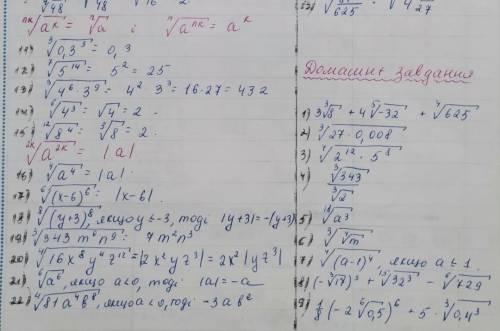 ⁴√48 ⁴√48 ⁴√16 2
ⁿᵏ√aᵏ = ⁿ√a і ⁿ√aⁿᵏ = aᵏ
11) ³√0,3³ = 0,3
12) ⁷√5¹⁴ = 5² = 25
13) ³√4⁶·3⁹ = 4² 3³ = 16·27 = 432
14) ⁶√4³ = √4 = 2.
15) ¹²√8⁴ = ³√8 = 2.
²ᵏ√a²ᵏ = |a|
16) ⁴√a⁴ = |a|.
17) ⁶√(x-b)⁶ = |x-b|.
18) ⁸√(y+3)⁸, якщо y ≤ -3, тоді |y+3| = -(y+3)
19) ³√343 m⁶n⁹ = 7 m²n³
20) ⁴√16x⁸y⁴z¹² = |2x²yz³| = 2x²|yz³|
21) ⁶√a⁶, якщо a<0, тоді |a| = -a
22) ⁴√81a⁴b⁸, якщо a<0, тоді -3ab²
625 ⁴√27
Домашнє завдання
1) 3³√8 + 4⁵√-32 + ⁴√625
2) ³√27·0,008
3) ⁴√2¹²·5⁸
4) ³√343 ³√2
5) ¹²√a³
6) ³√⁴√m
7) ⁴√(a-1)⁴, якщо a ≤ 1
8) (-³√17)³ + ¹⁵√32³ - ⁶√729
9) 1/8(-2⁶√0,5)⁶ + 5·³√0,4³